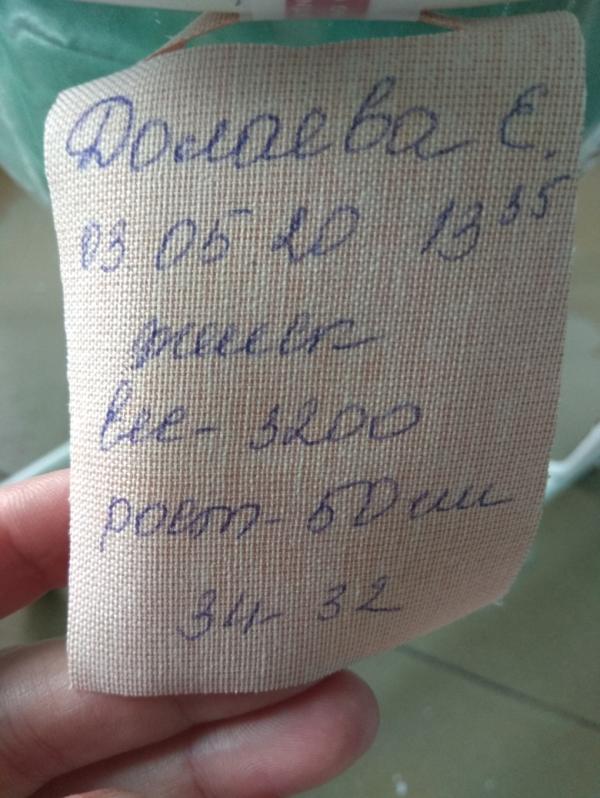 Долаева Е.
03.05.20 13 35
женск
вес - 3200
рост - 50 см
34 - 32